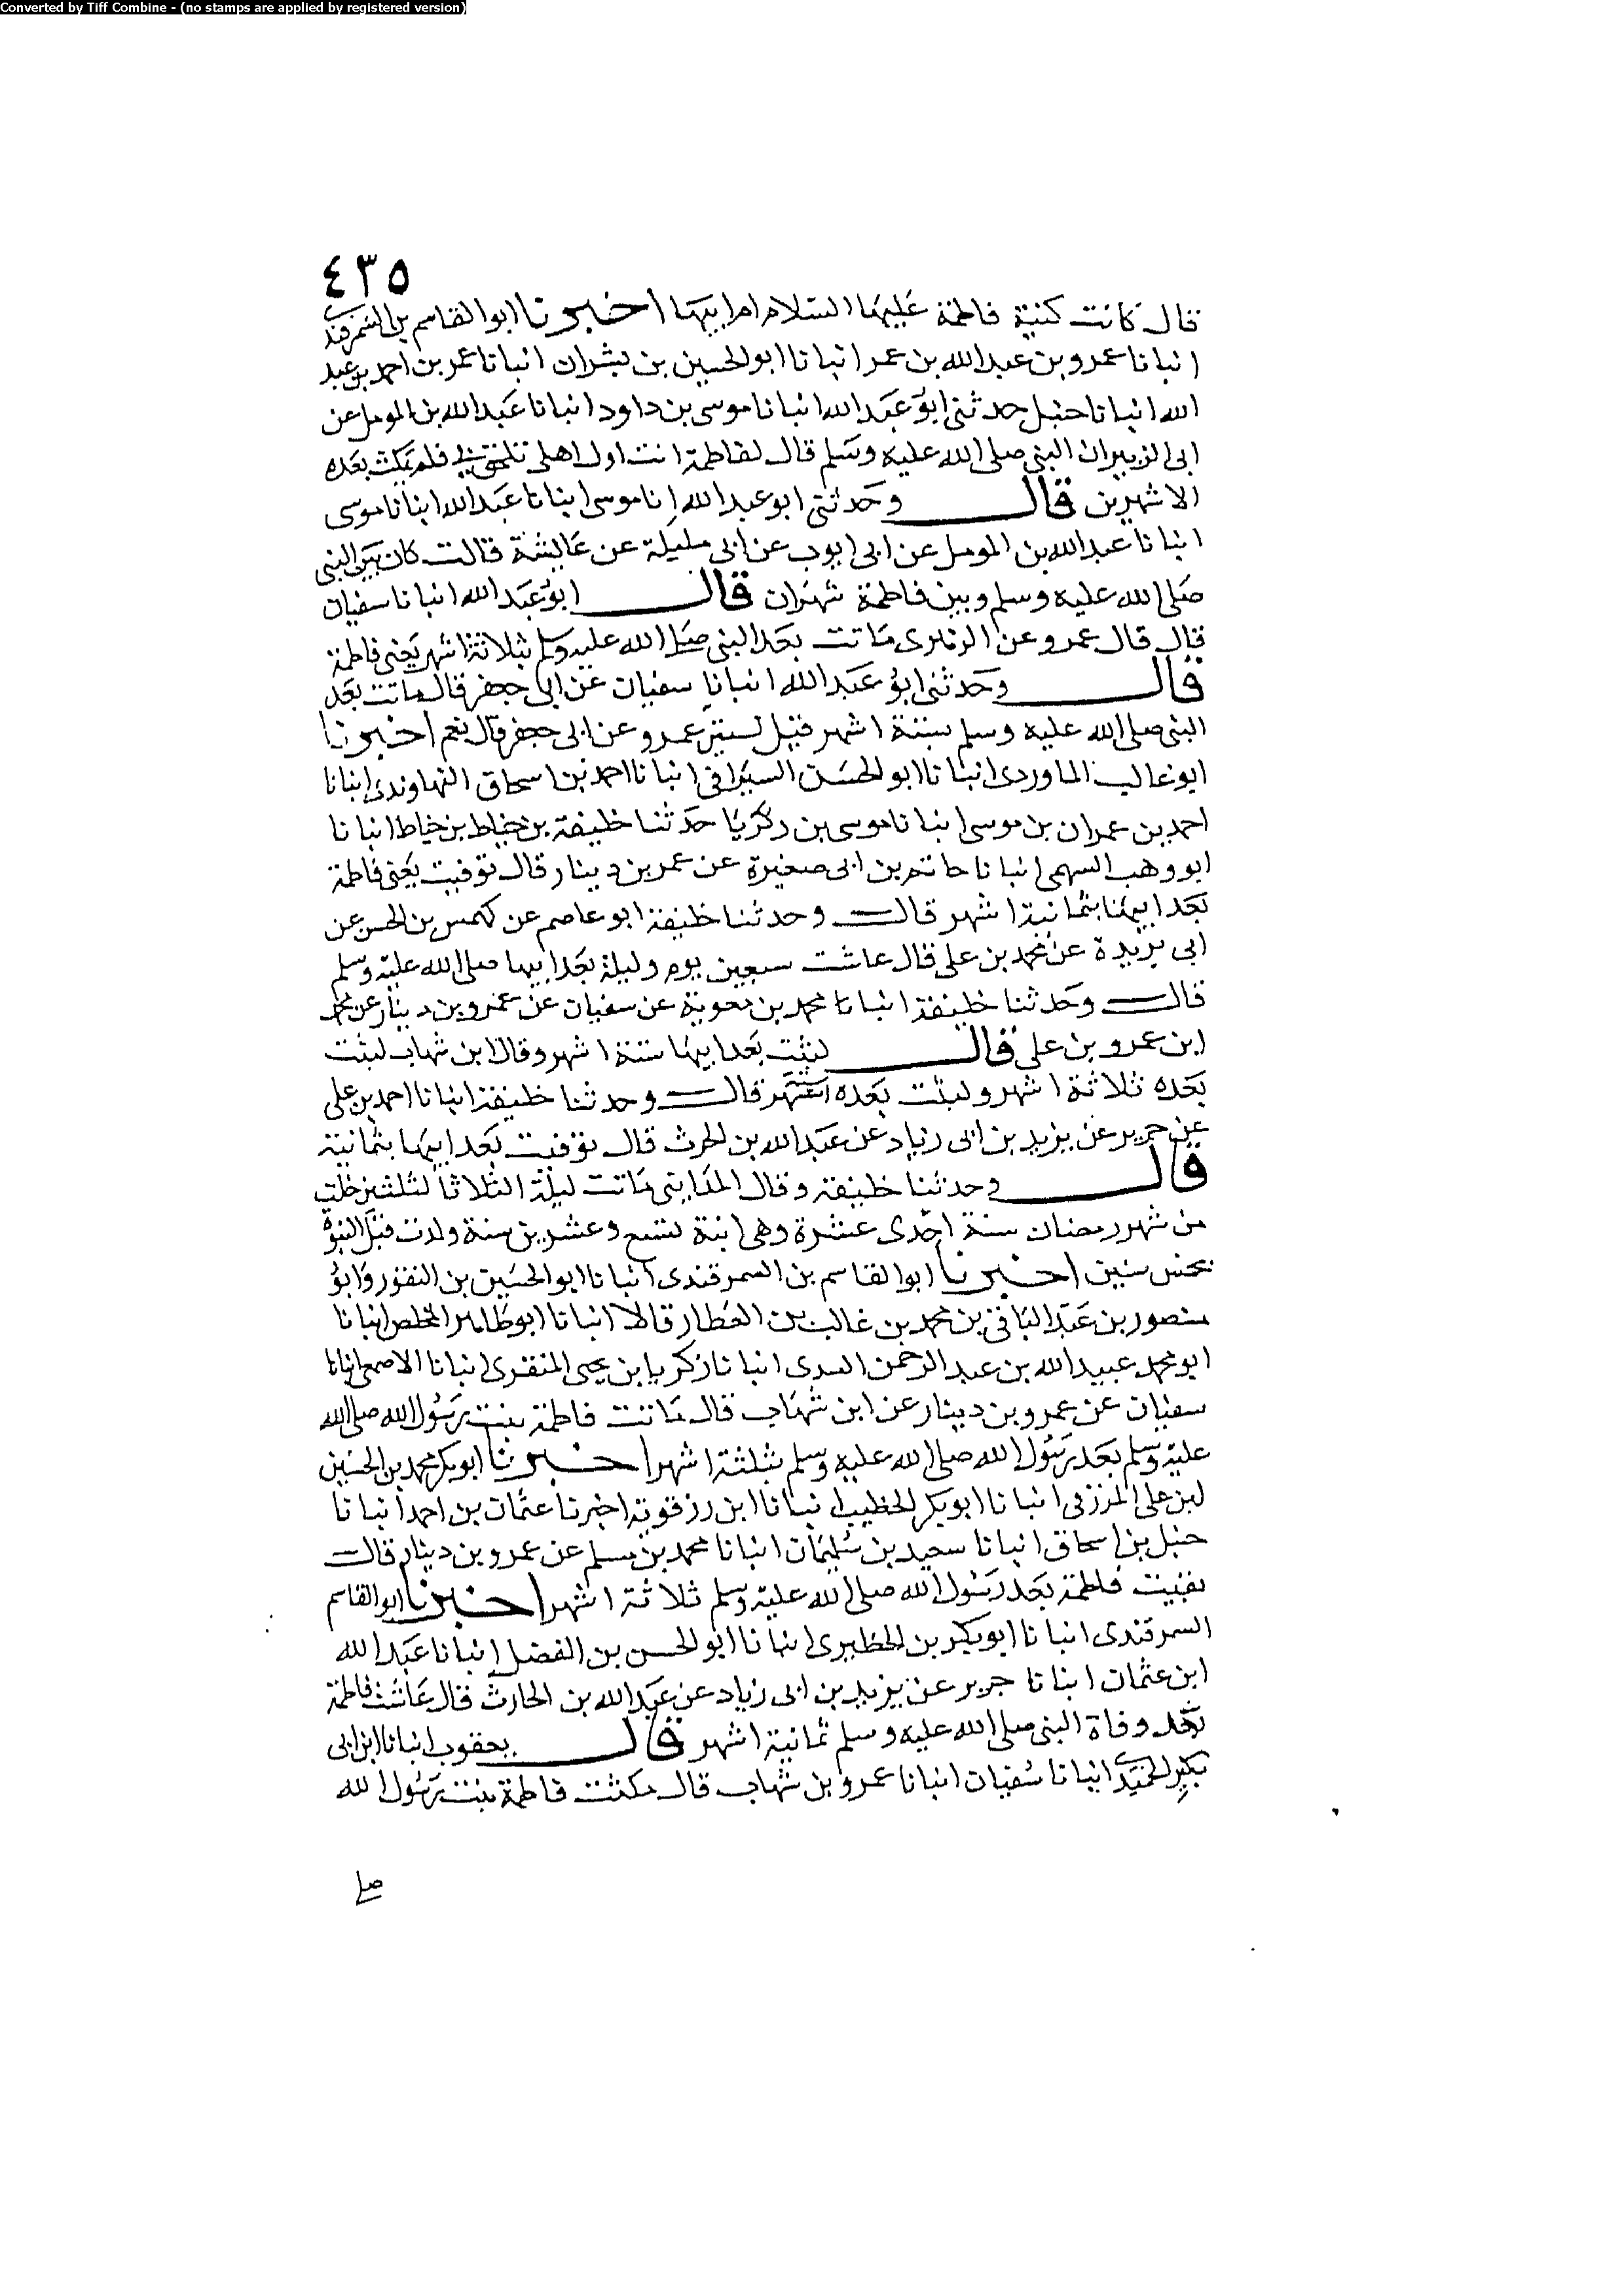 Converted by Tiff Combine - (no stamps are applied by registered version)
٤٣٥
قال كانت كنية فاطمة عليها السلام ام ابيها اخبرنا ابو القاسم بن السمرقندي
انبانا عمرو بن عبد الله بن عمر انبانا ابو الحسين بن بشران انبانا عمر بن احمد بن عبد
الله انبانا حنبل حدثني ابو عبد الله انبانا موسى بن داود انبانا عبد الله بن المومل عن
ابى الزبير ان النبي صلى الله عليه وسلم قال لفاطمة انت اول اهلى تلحق بي فلم تمكث بعده
الا شهرين قال وحدثني ابو عبد الله انا موسى انبانا عبد الله انبانا موسى
انبانا عبد الله بن المومل عن ابى ايوب عن ابى مليلة عن عايشة قالت كان بين النبي
صلى الله عليه وسلم وبين فاطمة شهران قال ابو عبد الله انبانا سفيان
قال قال عمرو عن الزهرى ماتت بعد النبي صلى الله عليه وسلم بثلاثة اشهر يعنى فاطمة
قال وحدثنى ابو عبد الله انبانا سفيان عن ابى جعفر قال ماتت بعد
النبي صلى الله عليه وسلم بستة اشهر فقيل لسفين عمرو عن ابى جعفر قال نعم اخبرنا
ابو غالب الماوردى انبانا ابو الحسن السيرافى انبانا احمد بن اسحاق النهاوندى انبانا
احمد بن عمران بن موسى انبانا موسى بن زكريا حدثنا خليفة بن خياط بن خياط انبانا
ابو وهب السهمى انبانا حاتم بن ابى صغيرة عن عمر بن دينار قال توفيت يعنى فاطمة
بعد ابيها بثمانية اشهر قال وحدثنا خليفة ابو عاصم عن كهمس بن الحسن عن
ابى بريدة عن محمد بن على قال عاشت سبعين يوم وليلة بعد ابيها صلى الله عليه وسلم
قال وحدثنا خليفة انبانا محمد بن معوية عن سفيان عن عمرو بن دينار عن محمد
ابن عمرو بن على قال لبثت بعد ابيها ستة اشهر وقال ابن شهاب لبثت
بعده ثلاثة اشهر ولبثت بعده اشهر قال وحدثنا خليفة انبانا احمد بن على
عن جرير عن يزيد بن ابى زياد عن عبد الله بن الحرث قال توفت بعد ابيها بثمانية
قال وحدثنا خليفة وقال المدايني ماتت ليلة الثلاثا لثلثين خلت
من شهر رمضان سنة احدى عشرة وهى ابنة تسع وعشرين سنة ولدت قبل النبوة
بخمس سنين اخبرنا ابو القاسم بن السمرقندى انبانا ابو الحسين بن النقور وابو
منصور بن عبد الباقى بن محمد بن غالب بن العطار قالا انبانا ابو طاهر المخلص انبانا
ابو محمد عبيد الله بن عبد الرحمن السدى انبانا زكريا بن يحيى المنقرى انبانا الاصمعى انبانا
سفيان عن عمرو بن دينار عن ابن شهاب قال ماتت فاطمة بنت رسول الله صلى الله
عليه وسلم بعد رسول الله صلى الله عليه وسلم بثلثة اشهر اخبرنا ابو بكر محمد بن الحسين
ابن على المزرفى انبانا ابو بكر الخطيب انبانا ابن رزقوته اخبرنا عثمان بن احمد انبانا
حنبل بن اسحاق انبانا سعيد بن سليمان انبانا محمد بن مسلم عن عمرو بن دينار قال
بقيت فاطمة بعد رسول الله صلى الله عليه وسلم ثلاثة اشهر اخبرنا ابو القاسم
السمرقندى انبانا ابو بكر بن الطبرى انبانا ابو الحسن بن الفضل انبانا عبد الله
ابن عثمان انبانا جرير عن يزيد بن ابى زياد عن عبد الله بن الحارث قال عاشت فاطمة
بعد وفاة النبي صلى الله عليه وسلم ثمانية اشهر قال يعقوب انبانا ابن ابى
بكير الحميدى انبانا سفيان انبانا عمرو بن شهاب قال مكثت فاطمة بنت رسول الله
صلى